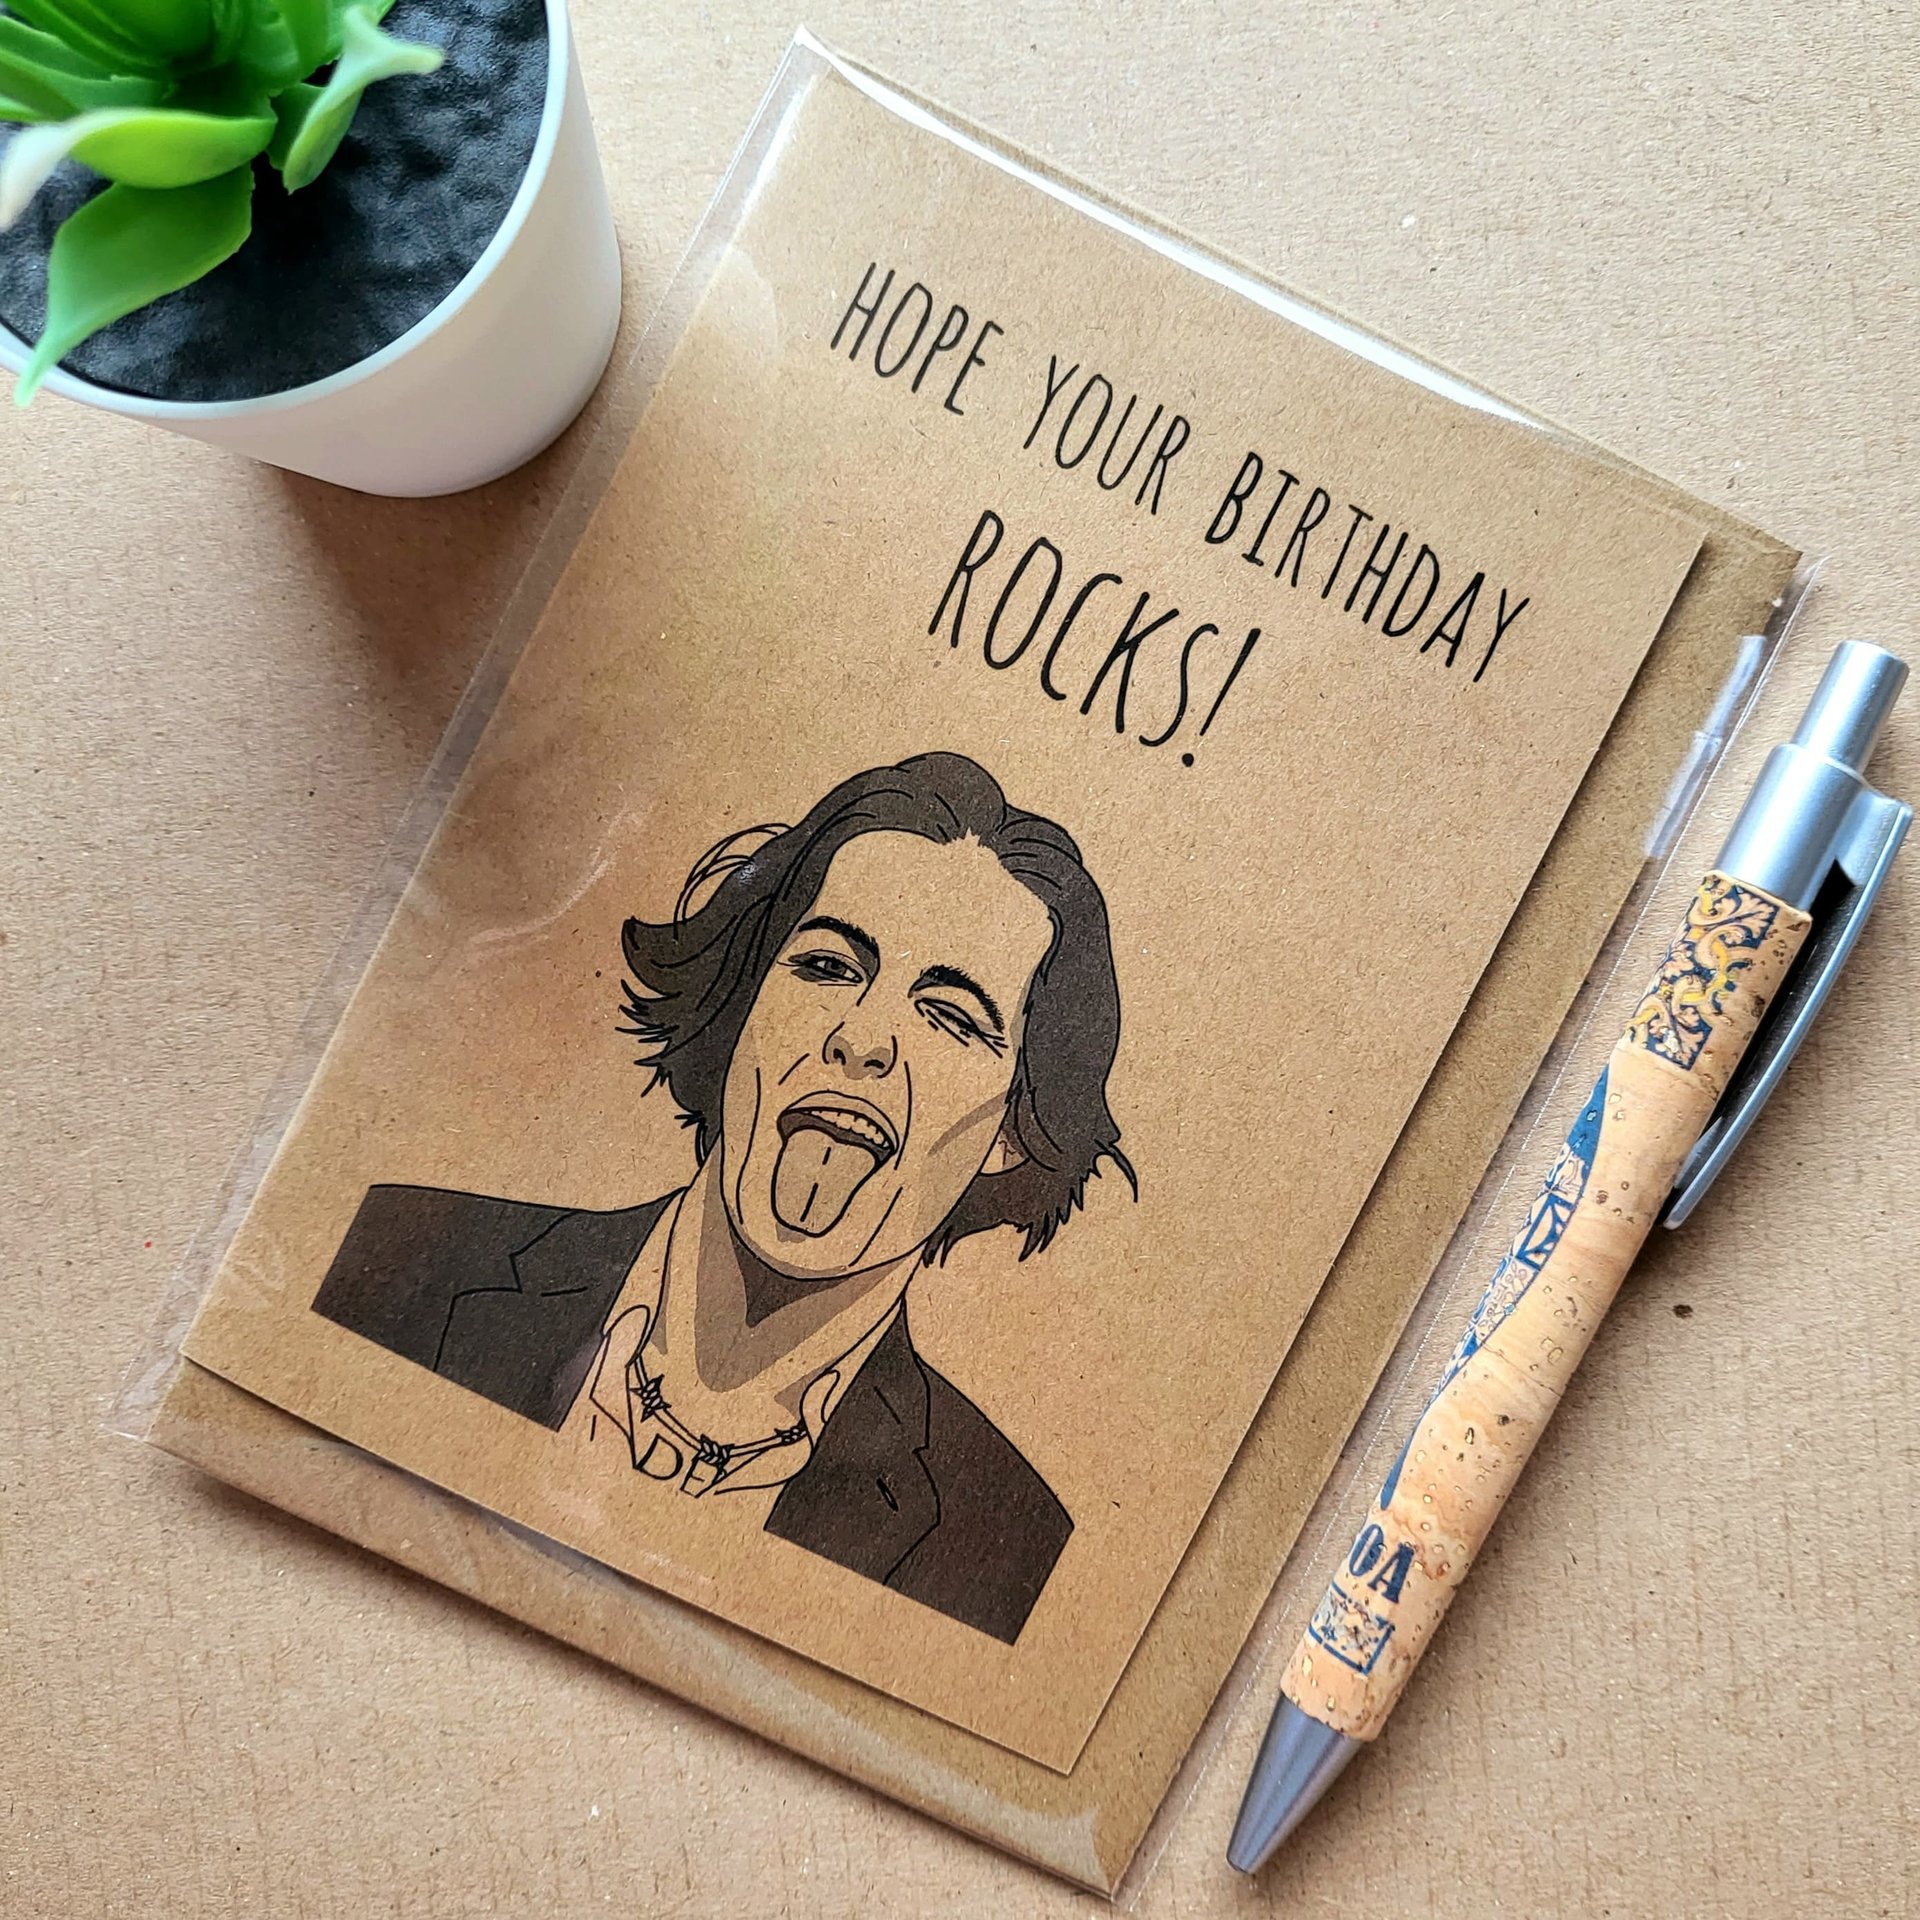 HOPE YOUR BIRTHDAY
ROCKS!
DE
OA